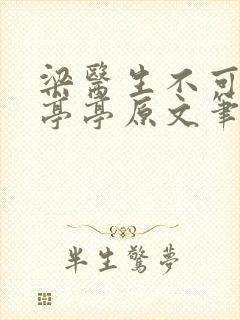 梁醫生不可
亭亭原文筆
半生驚夢